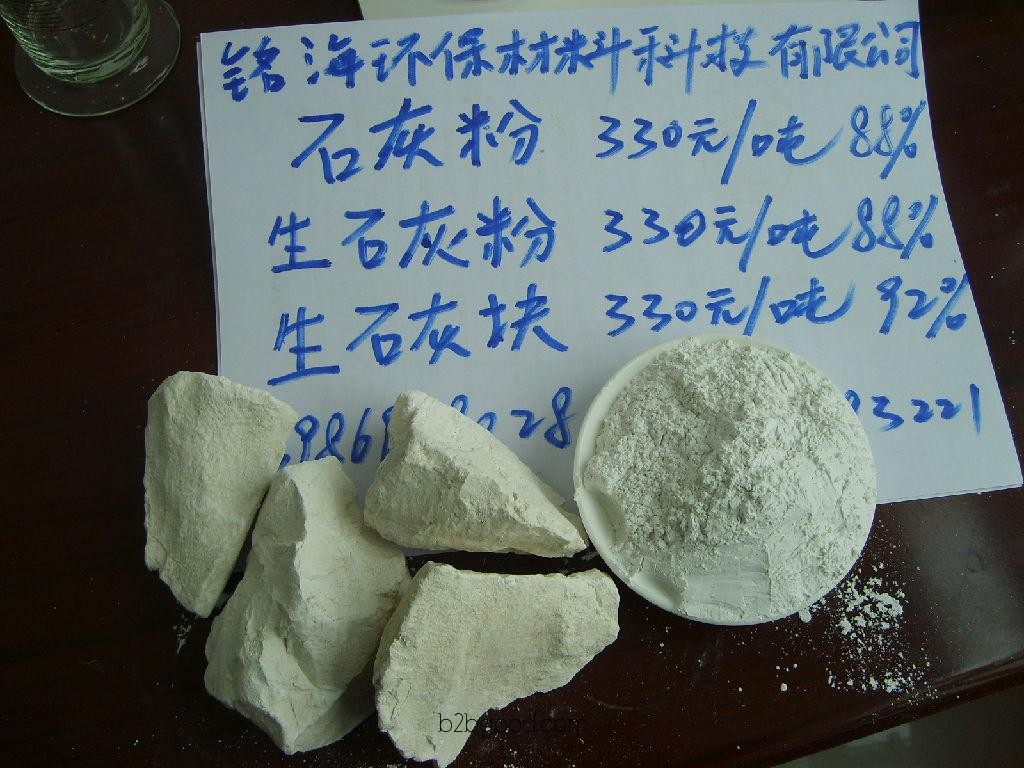 铭海环保材料科技有限公司
石灰粉 330元/吨 88%
生石灰粉 330元/吨 88%
生石灰块 330元/吨 92%
3221